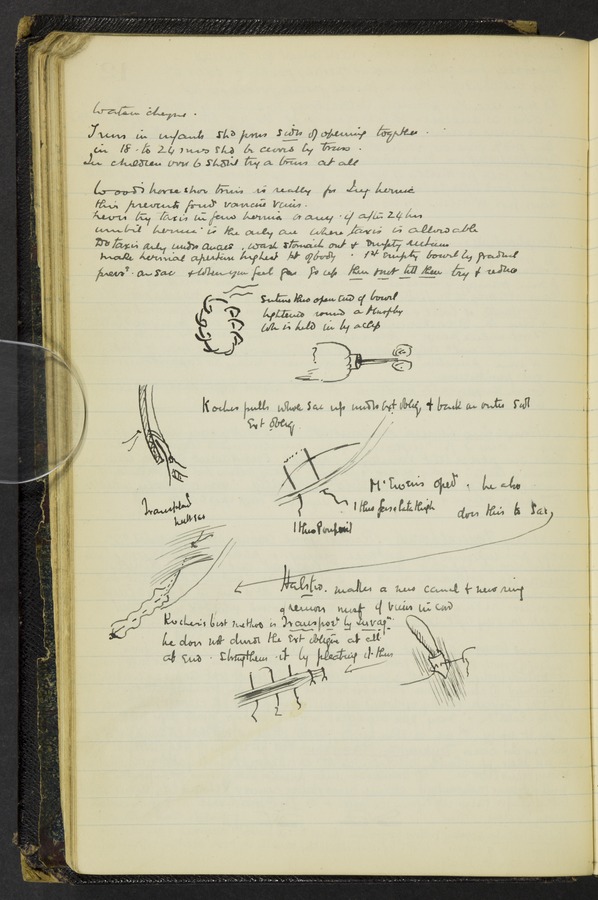 Watson Cheyne.
Truss in infants shd press sides of opening together.
in 18 to 24 mos shd be cured by truss.
In children over 6 shdn't try a truss at all
Wood's horse shoe truss is really for Ing hernia
this prevents femʳ vein.
never try taxis in fem hernia or any if after 24 hrs
umbil hernia is the only one where taxis is allowable
Do taxis only under anaes, wash stomach out & empty rectum
make hernial aperture highest pt of body. 1st empty bowel by gradual
press. on sac & when you feel gas go up then & not till then try & reduce
Suture thro open end of bowel
tightened round a Murphy
wh is held in by a clip
Kocher pulls whole sac up under Ext Obliq & back on outer side
Ext Obliq.
McEwen's opn. he also
does this to Sac,
1 thro fascia lata thigh
1 thro Poupart
Transplant
neck sac
Halsted. makes a new canal & new ring
& removes most of veins in cord
Kocher's best method is Transposn by invagn.
he does not divide the Ext oblique at all
at End. Strengthens it by pleating it thus